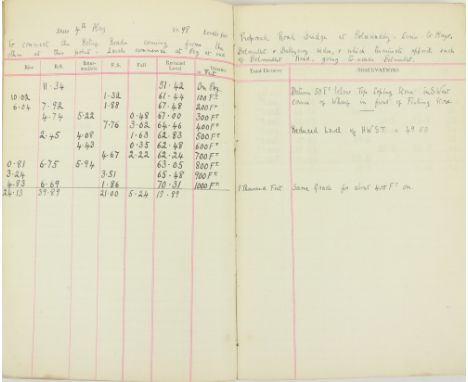 4th May
to connect the
coming from the
Rise B.S. Inter-mediate F.S. Fall Reduced Level Distance in Feet
11.34 51.42 On Peg
10.02 1.32 61.44 100 FT
6.04 7.92 1.88 67.48 200 FT
4.74 5.22 0.48 67.00 300 FT
7.76 3.02 64.46 400 FT
2.45 4.08 1.63 62.83 500 FT
4.43 0.35 62.48 600 FT
4.67 2.22 62.24 700 FT
0.81 6.75 5.94 63.05 800 FT
3.24 3.51 65.48 900 FT
4.83 6.69 1.86 70.31 1000 FT
24.13 39.89 21.00 5.24 18.89
Proposed Road Bridge at
Belmullet &amp; which terminate opposite each
of Belmullet Road, going to Belmullet.
Total Distance OBSERVATIONS
Datum 50 FT below Top Coping Stone in S. West
corner of Wharf in front of Fishing Store
Reduced Level of HWST = 49.00
1 Thousand Feet Same Grade for about 400 FT on